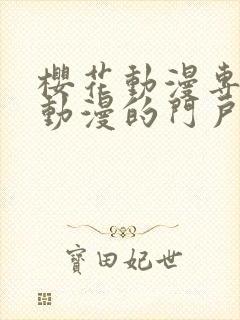 櫻花動漫專
動漫的門戶
寶田妃世